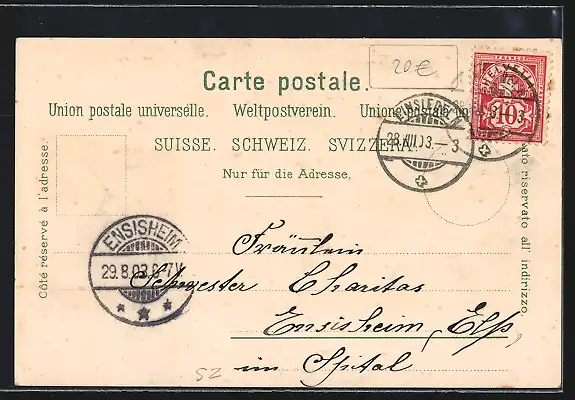 20€
Carte postale.
Union postale universelle. Weltpostverein. Unione postale un
SUISSE. SCHWEIZ. SVIZZERA.
Nur für die Adresse.
Côté réservé à l'adresse.
ato riservato all' indirizzo.
HELVETIA
FRANCO
10
EINSIEDELN
28.VIII.03.–3
ENSISHEIM
29.8.03.6-7V.
Fräulein
Schwester Charitas
Ensisheim, Elß
im Spital
SZ